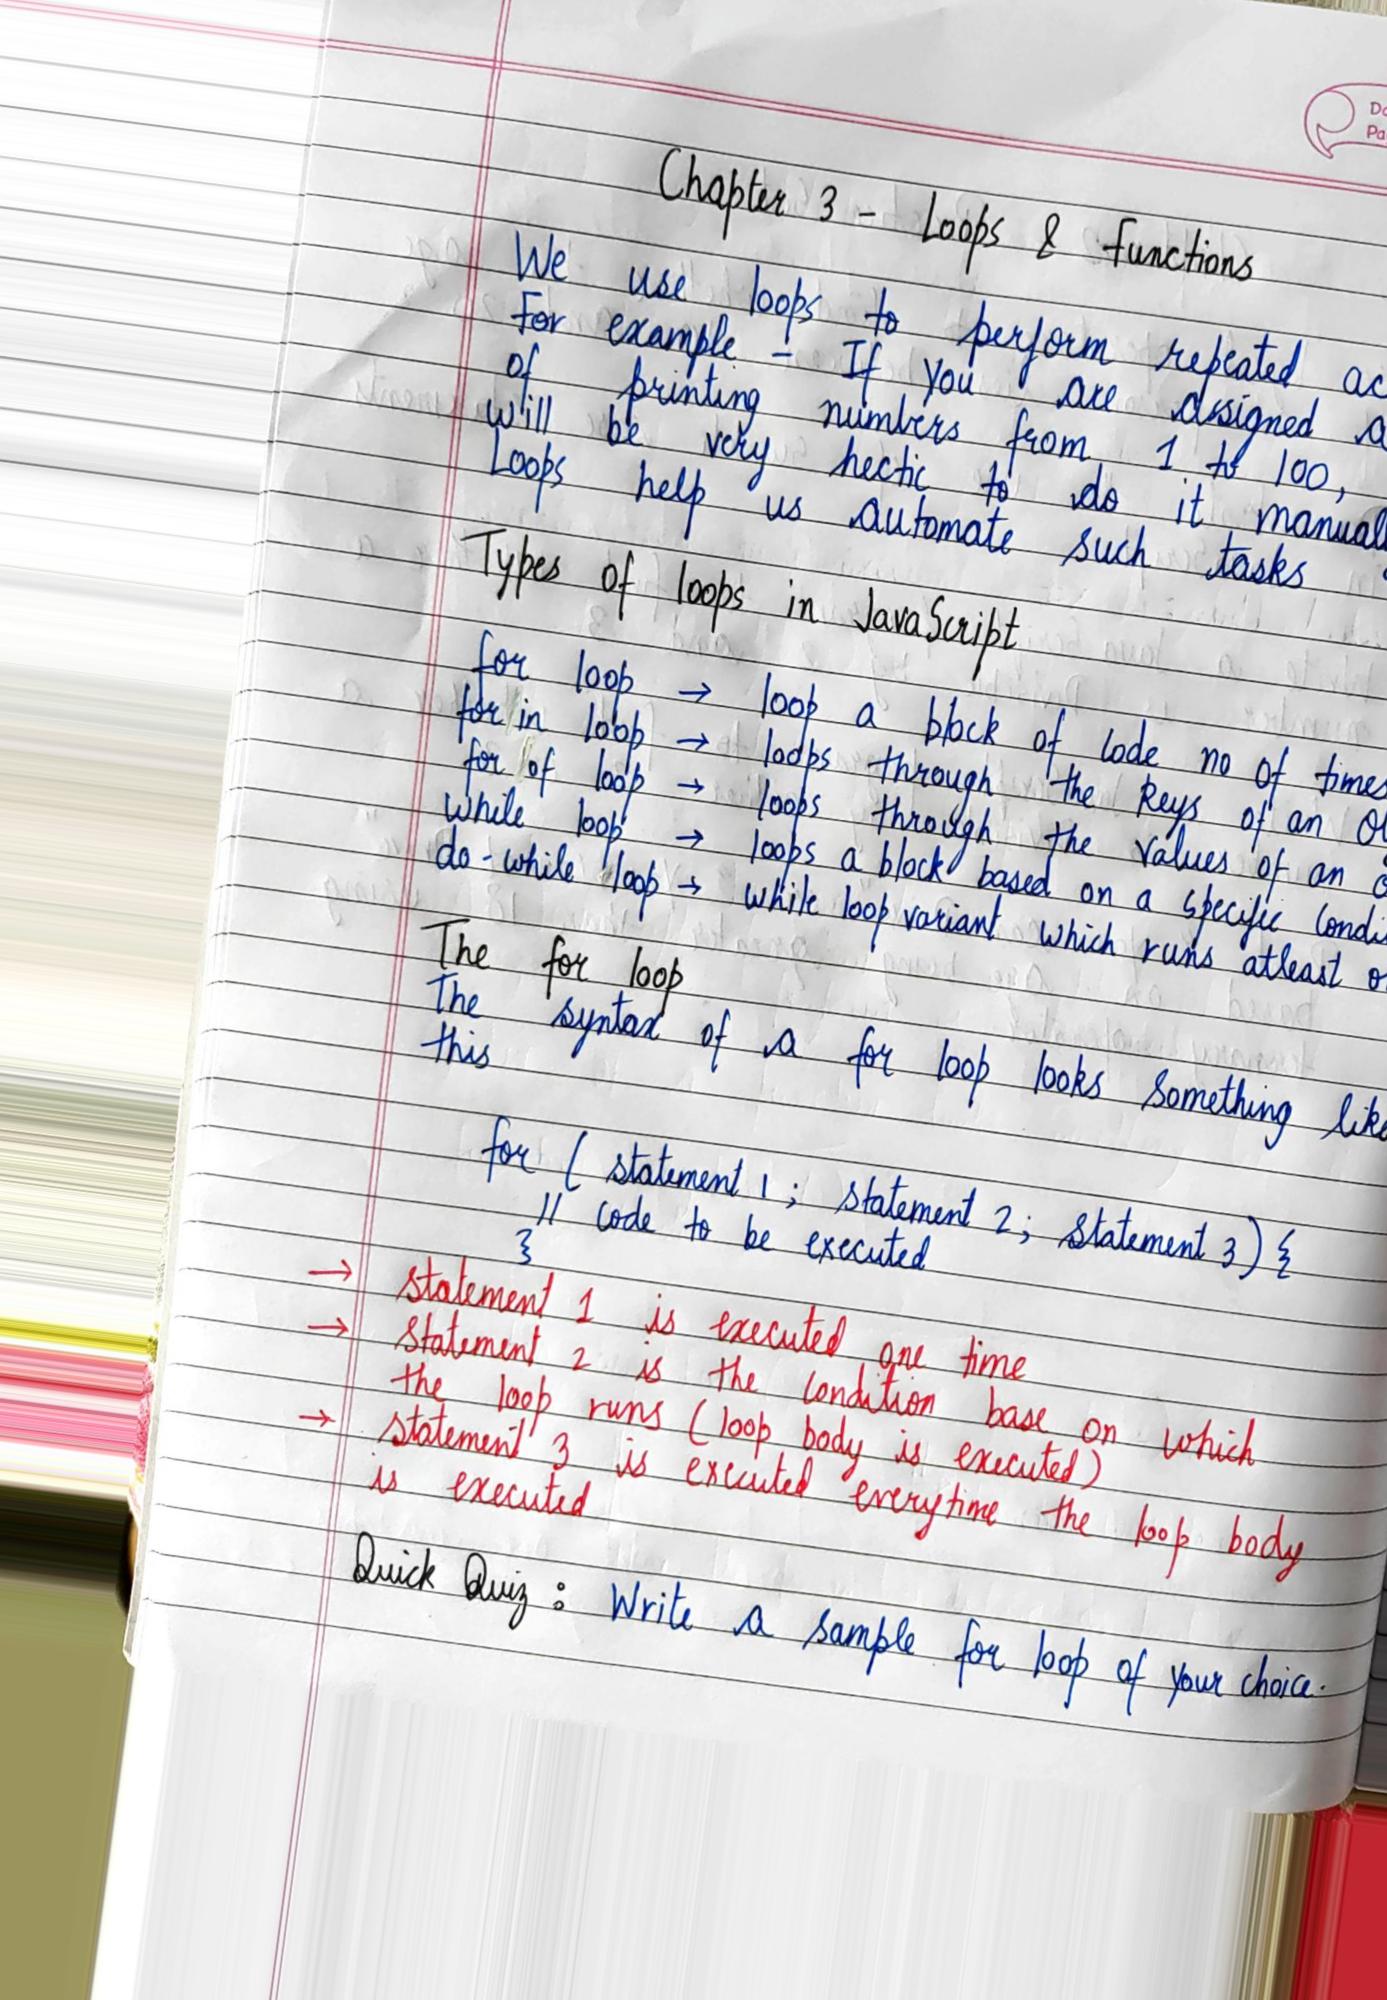 Chapter 3 - Loops & functions
We use loops to perform repeated
For example - If you are assigned a
of printing numbers from 1 to 100,
will be very hectic to do it
Loops help us automate such tasks
Types of loops in JavaScript
for loop → loop a block of code no of times
for in loop → loops through the keys of an
for of loop → loops through the values of an
while loop → loops a block based on a specific
do-while loop → while loop variant which runs atleast
The for loop
The syntax of a for loop looks something like
this
for ( statement 1 ; statement 2 ; statement 3 ) {
// code to be executed
}
→ statement 1 is executed one time
→ statement 2 is the condition base on which
the loop runs (loop body is executed)
→ statement 3 is executed everytime the loop body
is executed
Quick Quiz : Write a sample for loop of your choice.